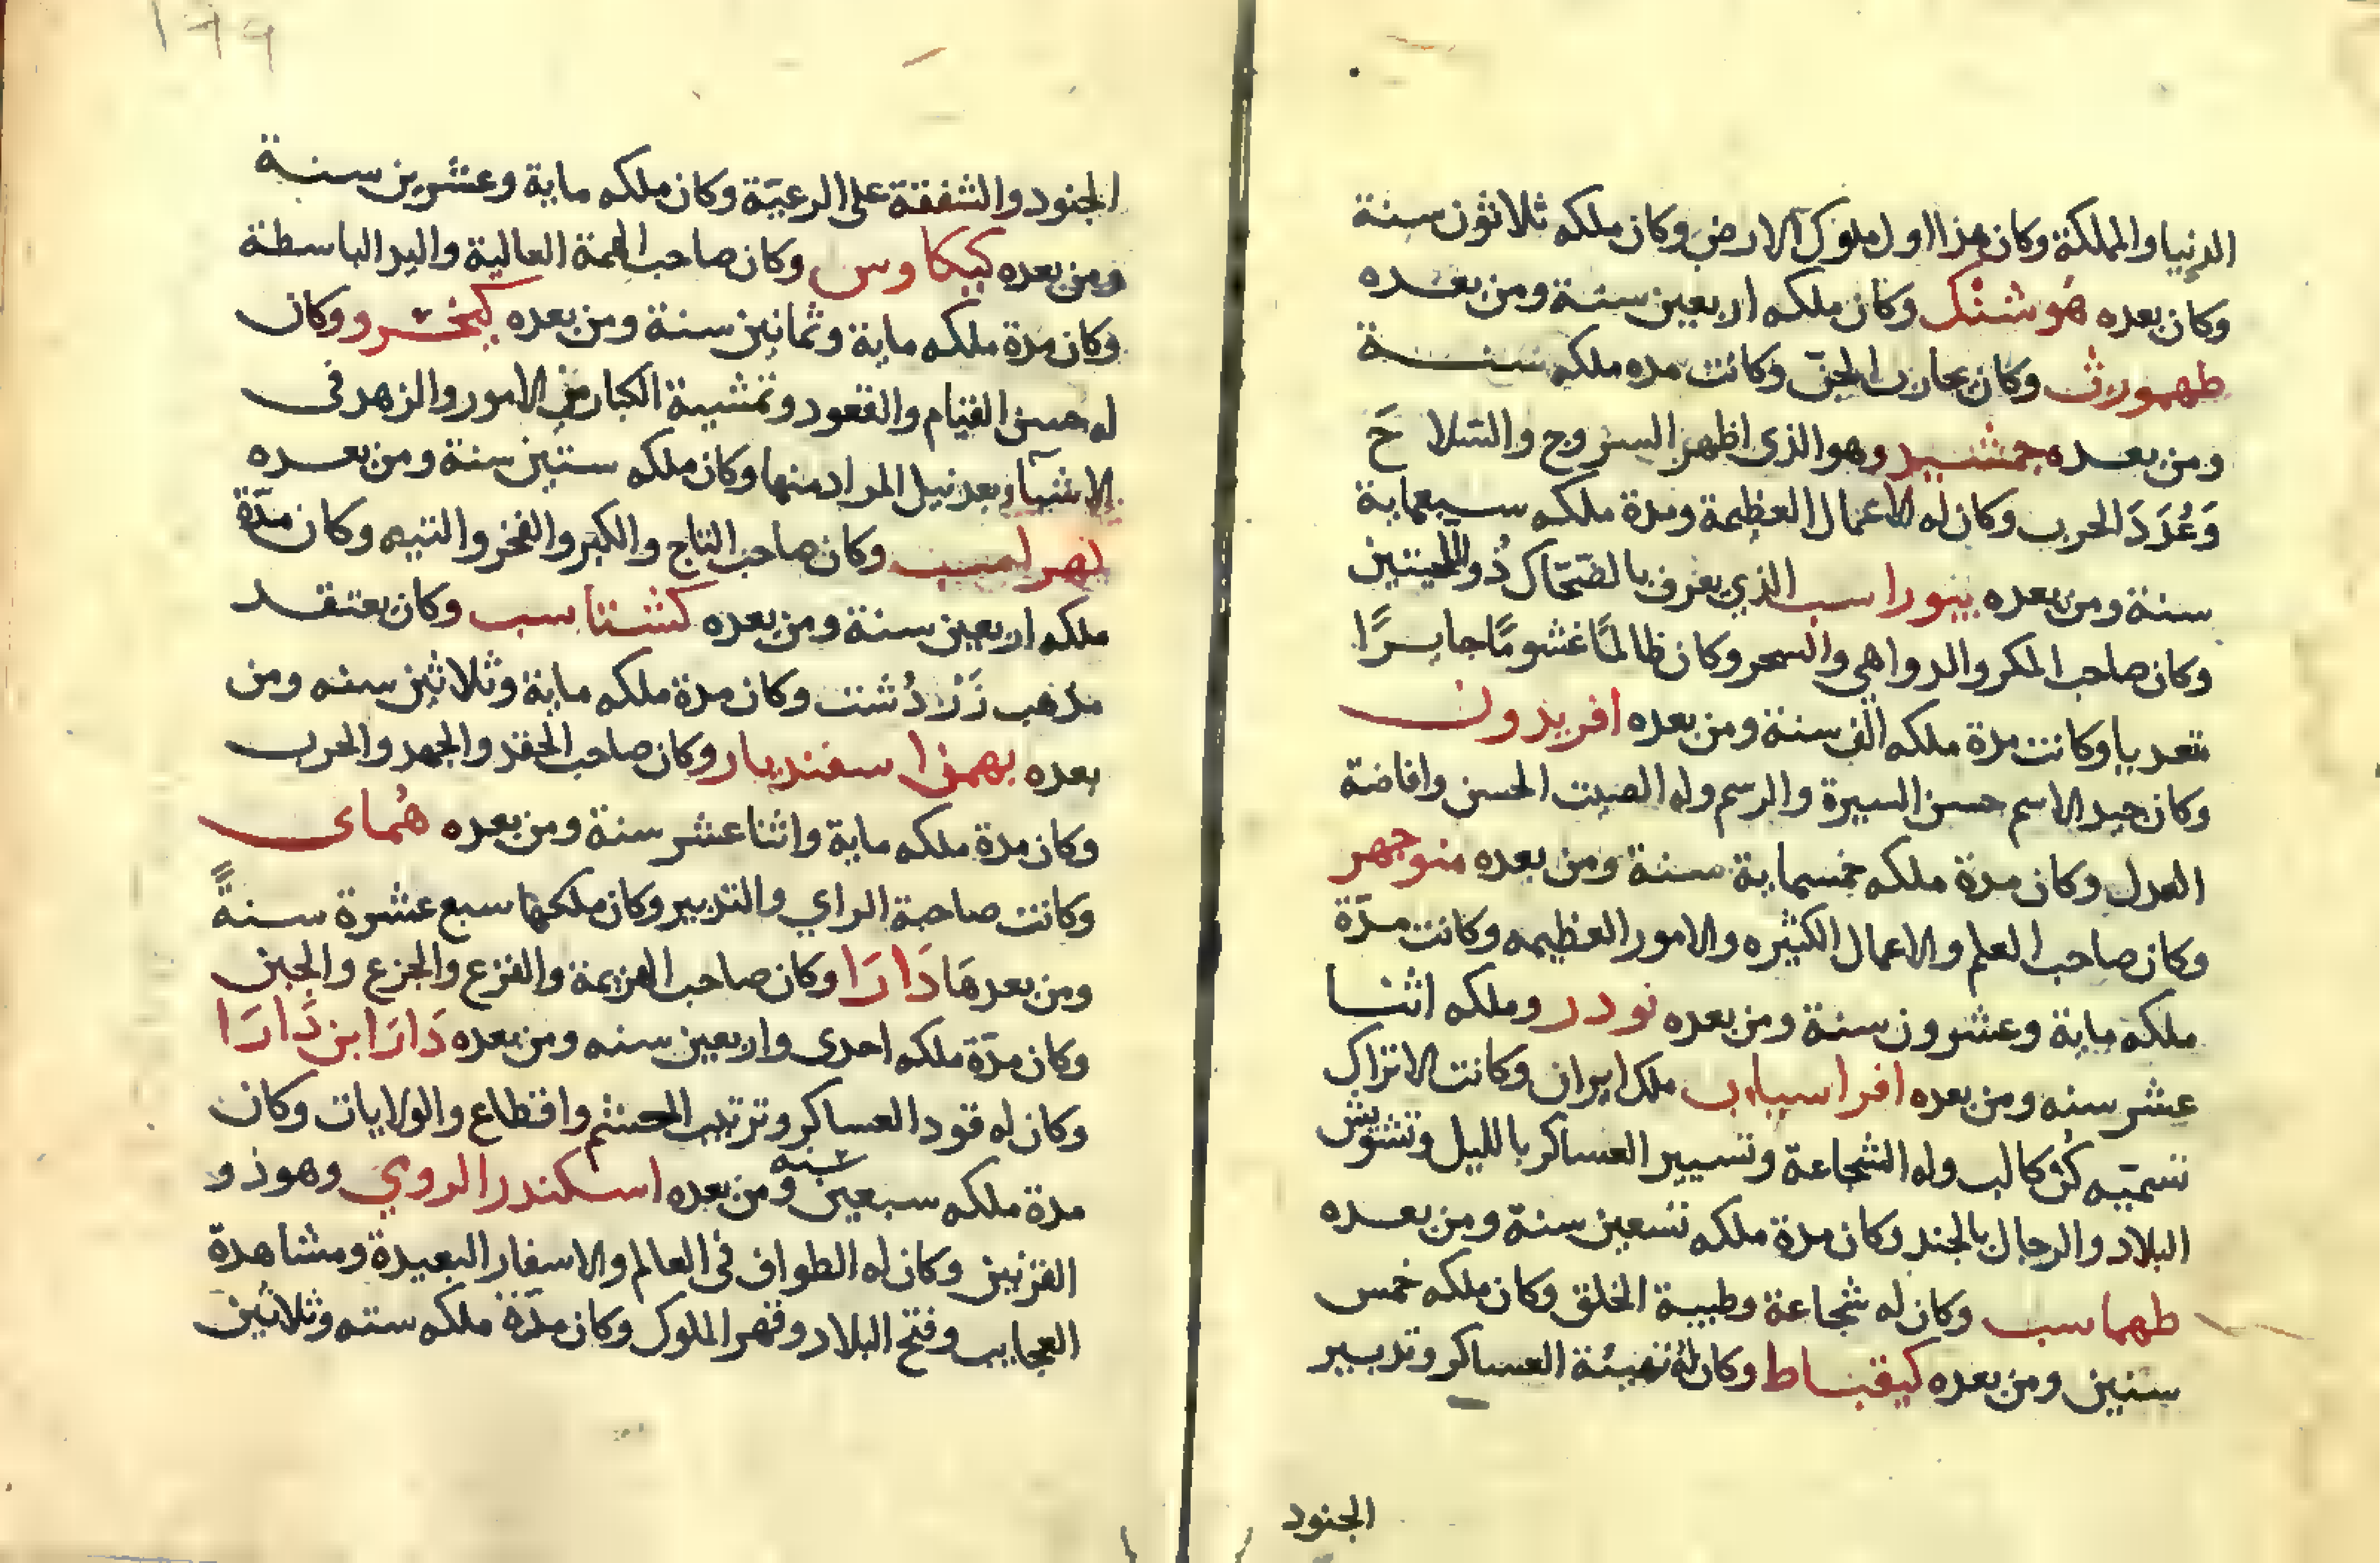 الدنيا والمملكة وكان هذا اول ملوك الارض وكان ملكه ثلاثون سنة
وكان بعده هوشنك وكان ملكه اربعين سنة ومن بعده
طهمورث وكان يحارب الجن وكانت مده ملكه سنة
ومن بعده جمشيد وهو الذى اظهر السروج والسلاحَ
وَعُدَدَ الحرب وكان له الاعمال العظيمة ومدة ملكه سبعماية
سنة ومن بعده بيوراسب الذي يعرف بالضحّاك ذُو اللحيتين
وكان صاحب المكر والدواهي والسحر وكان ظالمًا غشومًا جايرًا
متعديا وكانت مدة ملكه الف سنة ومن بعده افريدون
وكان جيد الاسم حسن السيرة والرسم وله الصيت الحسن وافاضة
العدل وكان مدة ملكه خمسماية سنة ومن بعده منوجهر
وكان صاحب العلم والاعمال الكثيره والامور العظيمه وكانت مدّة
ملكه ماية وعشرون سنة ومن بعده نودر وملكه اثنا
عشر سنه ومن بعده افراسياب ملك ايران وكانت الاتراك
تسمّيه كُن كالب وله الشجاعة وتسيير العساكر بالليل وتشويش
البلاد والرجال بالجند وكان مدة ملكه تسعين سنة ومن بعده
طهماسب وكان له شجاعة وطيبة الخلق وكان ملكه خمس
سنين ومن بعده كيقباط وكان لهُ تعبئة العساكر وتدبير
الجنود
١٩٩
الجنود والشفقة على الرعيّة وكان ملكه ماية وعشرين سنة
ومن بعده كيكاوس وكان صاحب الهمة العالية واليد الباسطة
وكان مدة ملكه ماية وثمانين سنة ومن بعده كيخسرو وكان
له حسن القيام والقعود وتمشية الكبار من الامور والزهد فى
الاشيآء بعد نيل المراد منها وكان ملكه ستين سنة ومن بعده
لهرلسب وكان صاحب التاج والكبر والفخر والتيه وكان مدّة
ملكه اربعين سنة ومن بعده كشتاسب وكان يعتقد
مذهب زَرْدُشت وكان مدة ملكه ماية وثلاثين سنه ومن
بعده بهمن اسفنديار وكان صاحب الحقد والجهد والحرب
وكان مدة ملكه ماية واثنا عشر سنة ومن بعده هُماى
وكانت صاحبة الراي والتدبير وكان ملكها سبع عشرة سنةً
ومن بعدهَا دَارَا وكان صاحب الهزيمة والفزع والجزع والجبن
وكان مدّة ملكه احدى واربعين سنه ومن بعده دَارَا ابن دَارَا
وكان له قود العساكر وترتيب الحشم واقطاع والولايات وكان
مدة ملكه سبعين سنه ومن بعده اسكندر الرومي وهو ذو
القرنين وكان له الطواف فى العالم والاسفار البعيدة ومشاهدة
العجايب وفتح البلاد وقهر الملوك وكان مدّة ملكه سته وثلاثين